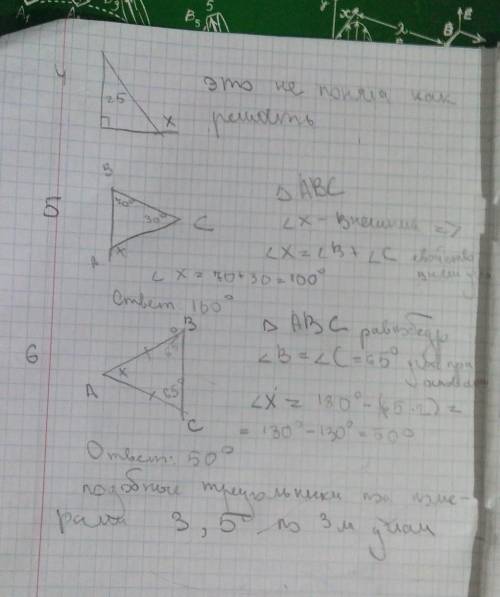 A₁
B₃
5
4
25
x
это не поняла как
решать
5
B
70°
30°
C
x
A
Δ ABC
∠x - внешний =>
∠x = ∠B + ∠C свойство
∠x = 70+30=100°
Ответ 100°
6
B
x
65°
A
C
Δ ABC равнобедр
∠B = ∠C = 65°
∠x = 180° - (65·2) =
= 180° - 130° = 50°
Ответ: 50°
подобные треугольники по
3, 5 по 3м углам